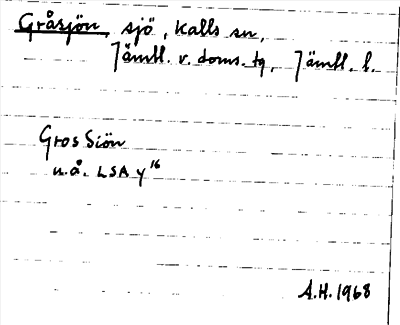 Gråsjön, sjö, Kalls sn,
Jämtl. v. doms. tg, Jämtl. l.
Gros Siön
u.å. LSA y¹⁶
A.H. 1968